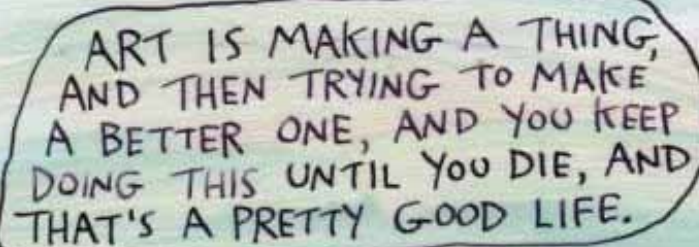 ART IS MAKING A THING,
AND THEN TRYING TO MAKE
A BETTER ONE, AND YOU KEEP
DOING THIS UNTIL YOU DIE, AND
THAT'S A PRETTY GOOD LIFE.